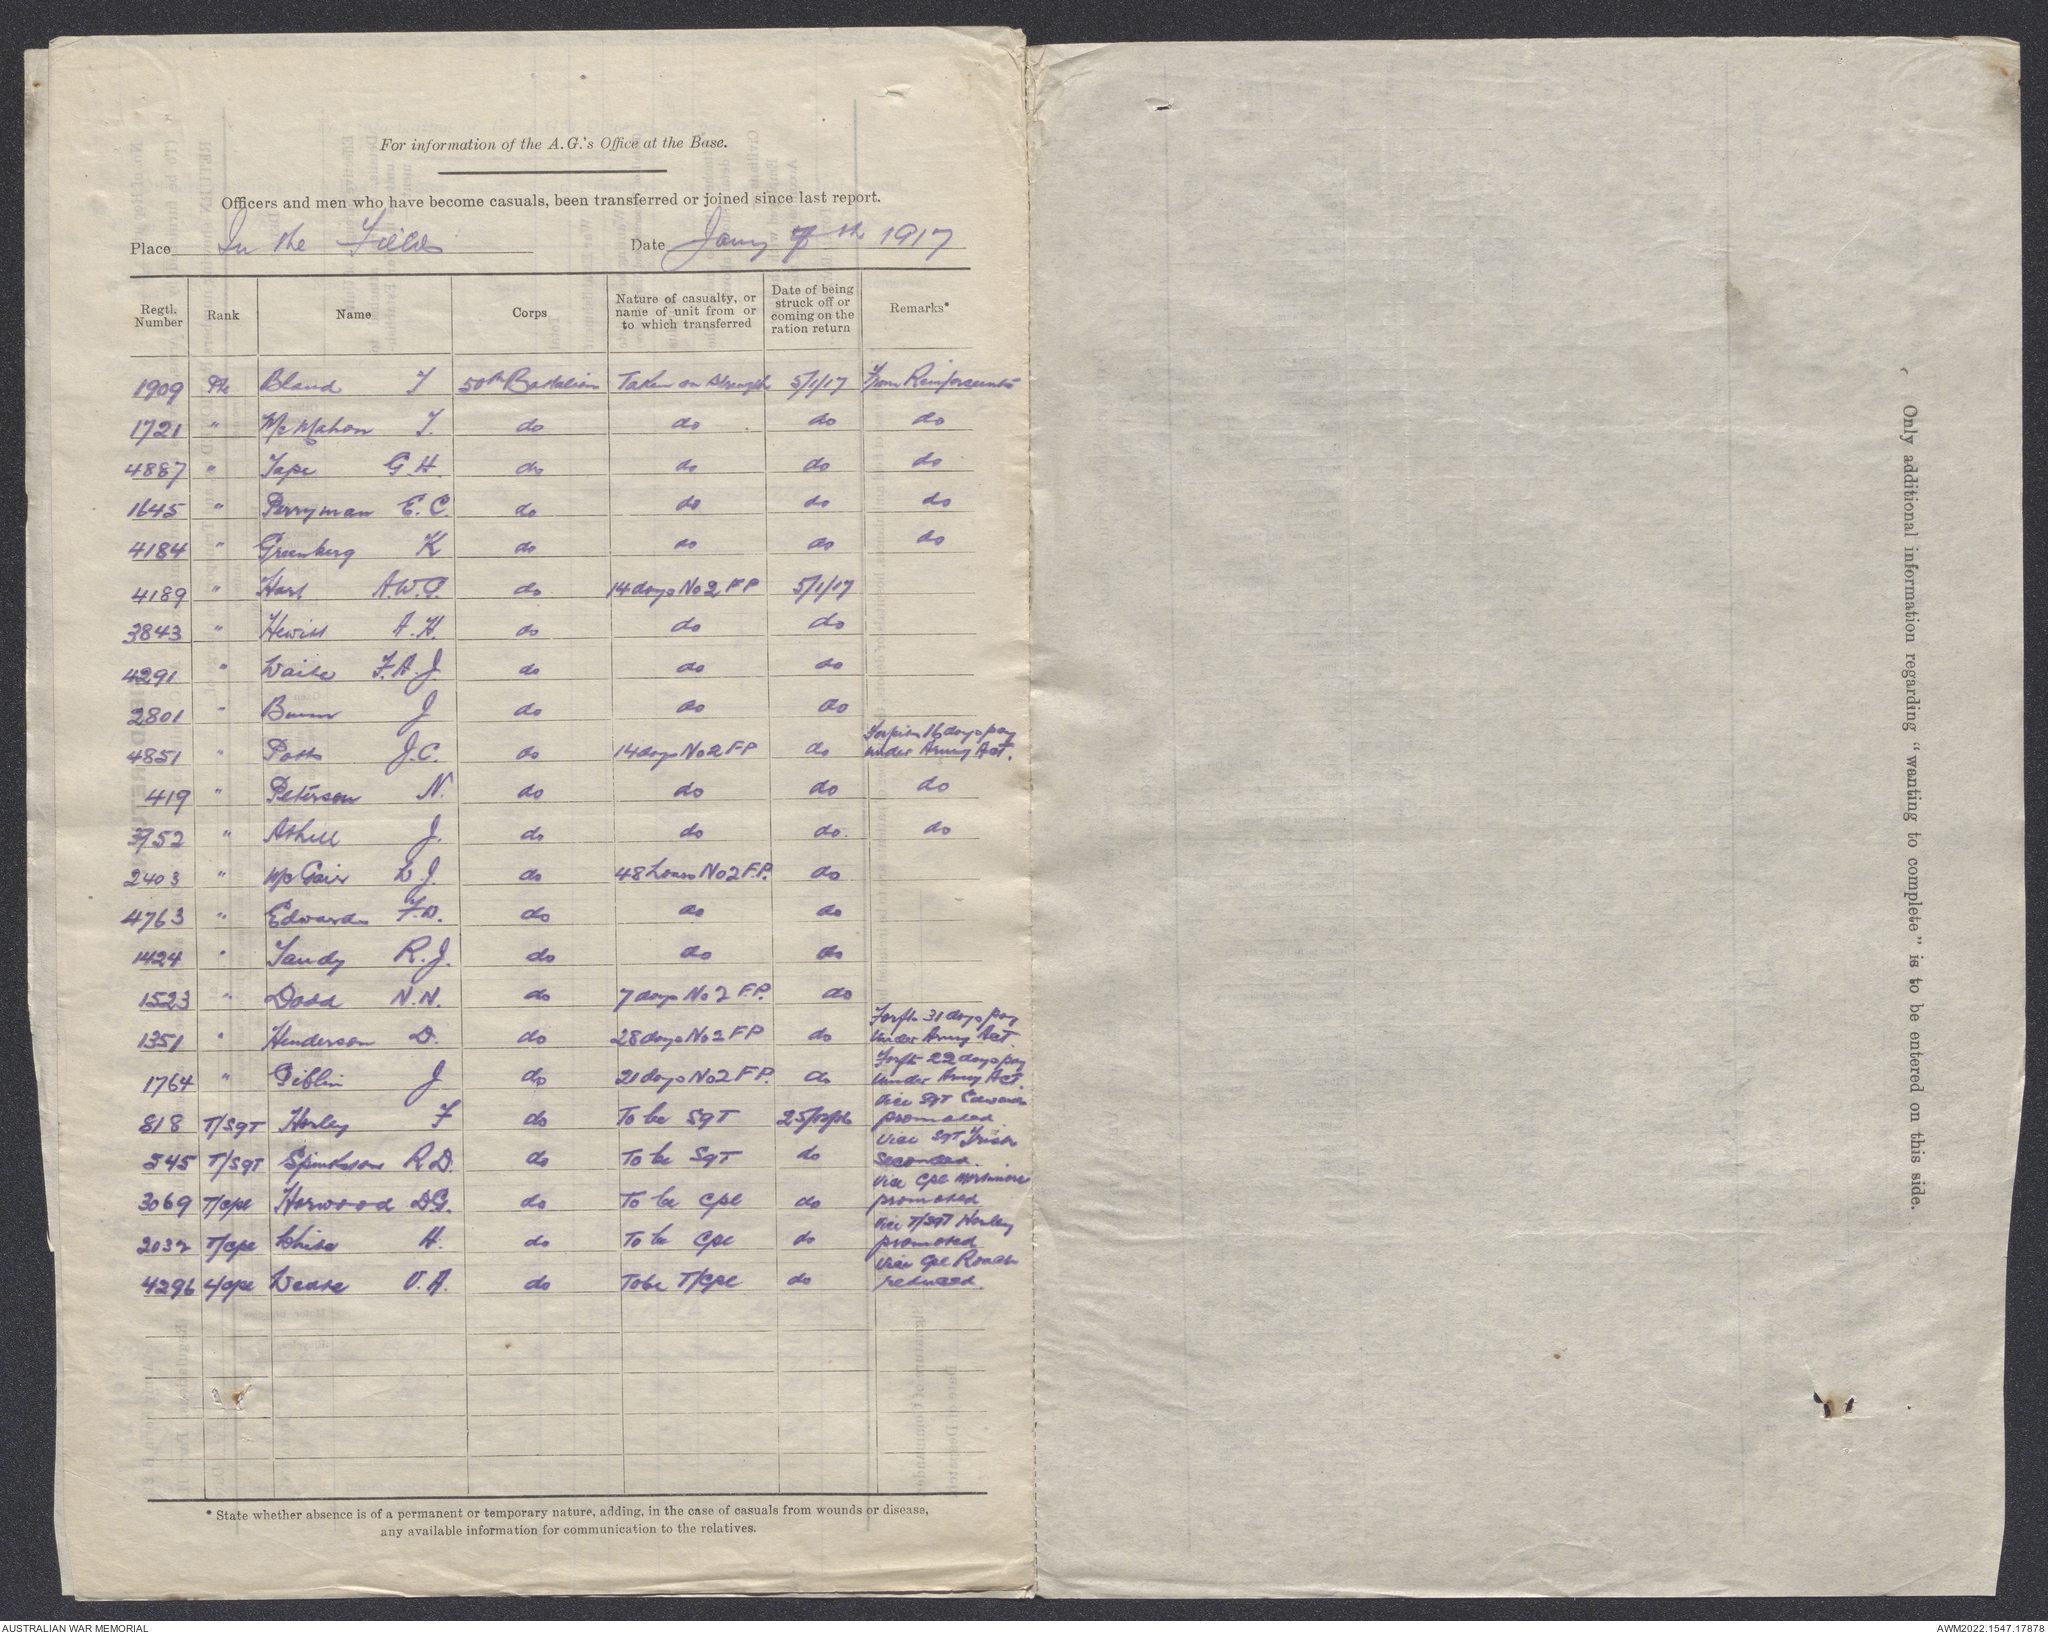 For information of the A.G.'s Office at the Base.
Officers and men who have become casuals, been transferred or joined since last report.
Place In the Field Date Jany 7th 1917
Regtl. Number Rank Name Corps Nature of casualty, or name of unit from or to which transferred Date of being struck off or coming on the ration return Remarks*
1909 Pte Bland T 50th Battalion Taken on Strength 5/1/17 From Reinforcements
1721 " McMahon T. do do do do
4887 " Tape G.H. do do do do
1645 " Perryman E.C. do do do do
4184 " Greenberg K do do do do
4189 " Hart A.W.G. do 14 days No 2 FP 5/1/17
3843 " Hewitt A.H. do do do
4291 " Waite F.A.J do do do
2801 " J do do do
4851 " Potts J.C. do 14 days No 2 FP do Forfeits 16 days pay under Army Act.
419 " Peterson N. do do do do
3752 " Athill J. do do do do
2403 " McGair D.J. do 48 hours No 2 F.P. do
4763 " Edwards F.D. do do do
1424 " Tandy R.J. do do do
1523 " Dodd N.N. do 7 days No 2 F.P. do
1351 " Henderson D. do 28 days No 2 FP do Forft. 31 days pay under Army Act.
1764 " Giblin J do 21 days No 2 FP. do Forft 22 days pay under Army Act.
818 T/Sgt Horley F do To be Sgt 25/12/16 Vice Sgt Edwards promoted
545 T/Sgt R.D. do To be Sgt do Vice Sgt seconded.
3069 T/Cpl Horwood D.G. do To be Cpl do Vice Cpl Mortimore promoted
2032 T/Cpl White H. do To be Cpl do Vice T/Sgt Horley promoted
4296 L/Cpl V.A. do To be T/Cpl do Vice Cpl Roach reduced.
* State whether absence is of a permanent or temporary nature, adding, in the case of casuals from wounds or disease,
any available information for communication to the relatives.
Only additional information regarding "wanting to complete" is to be entered on this side.
AUSTRALIAN WAR MEMORIAL
AWM2022.1547.17878